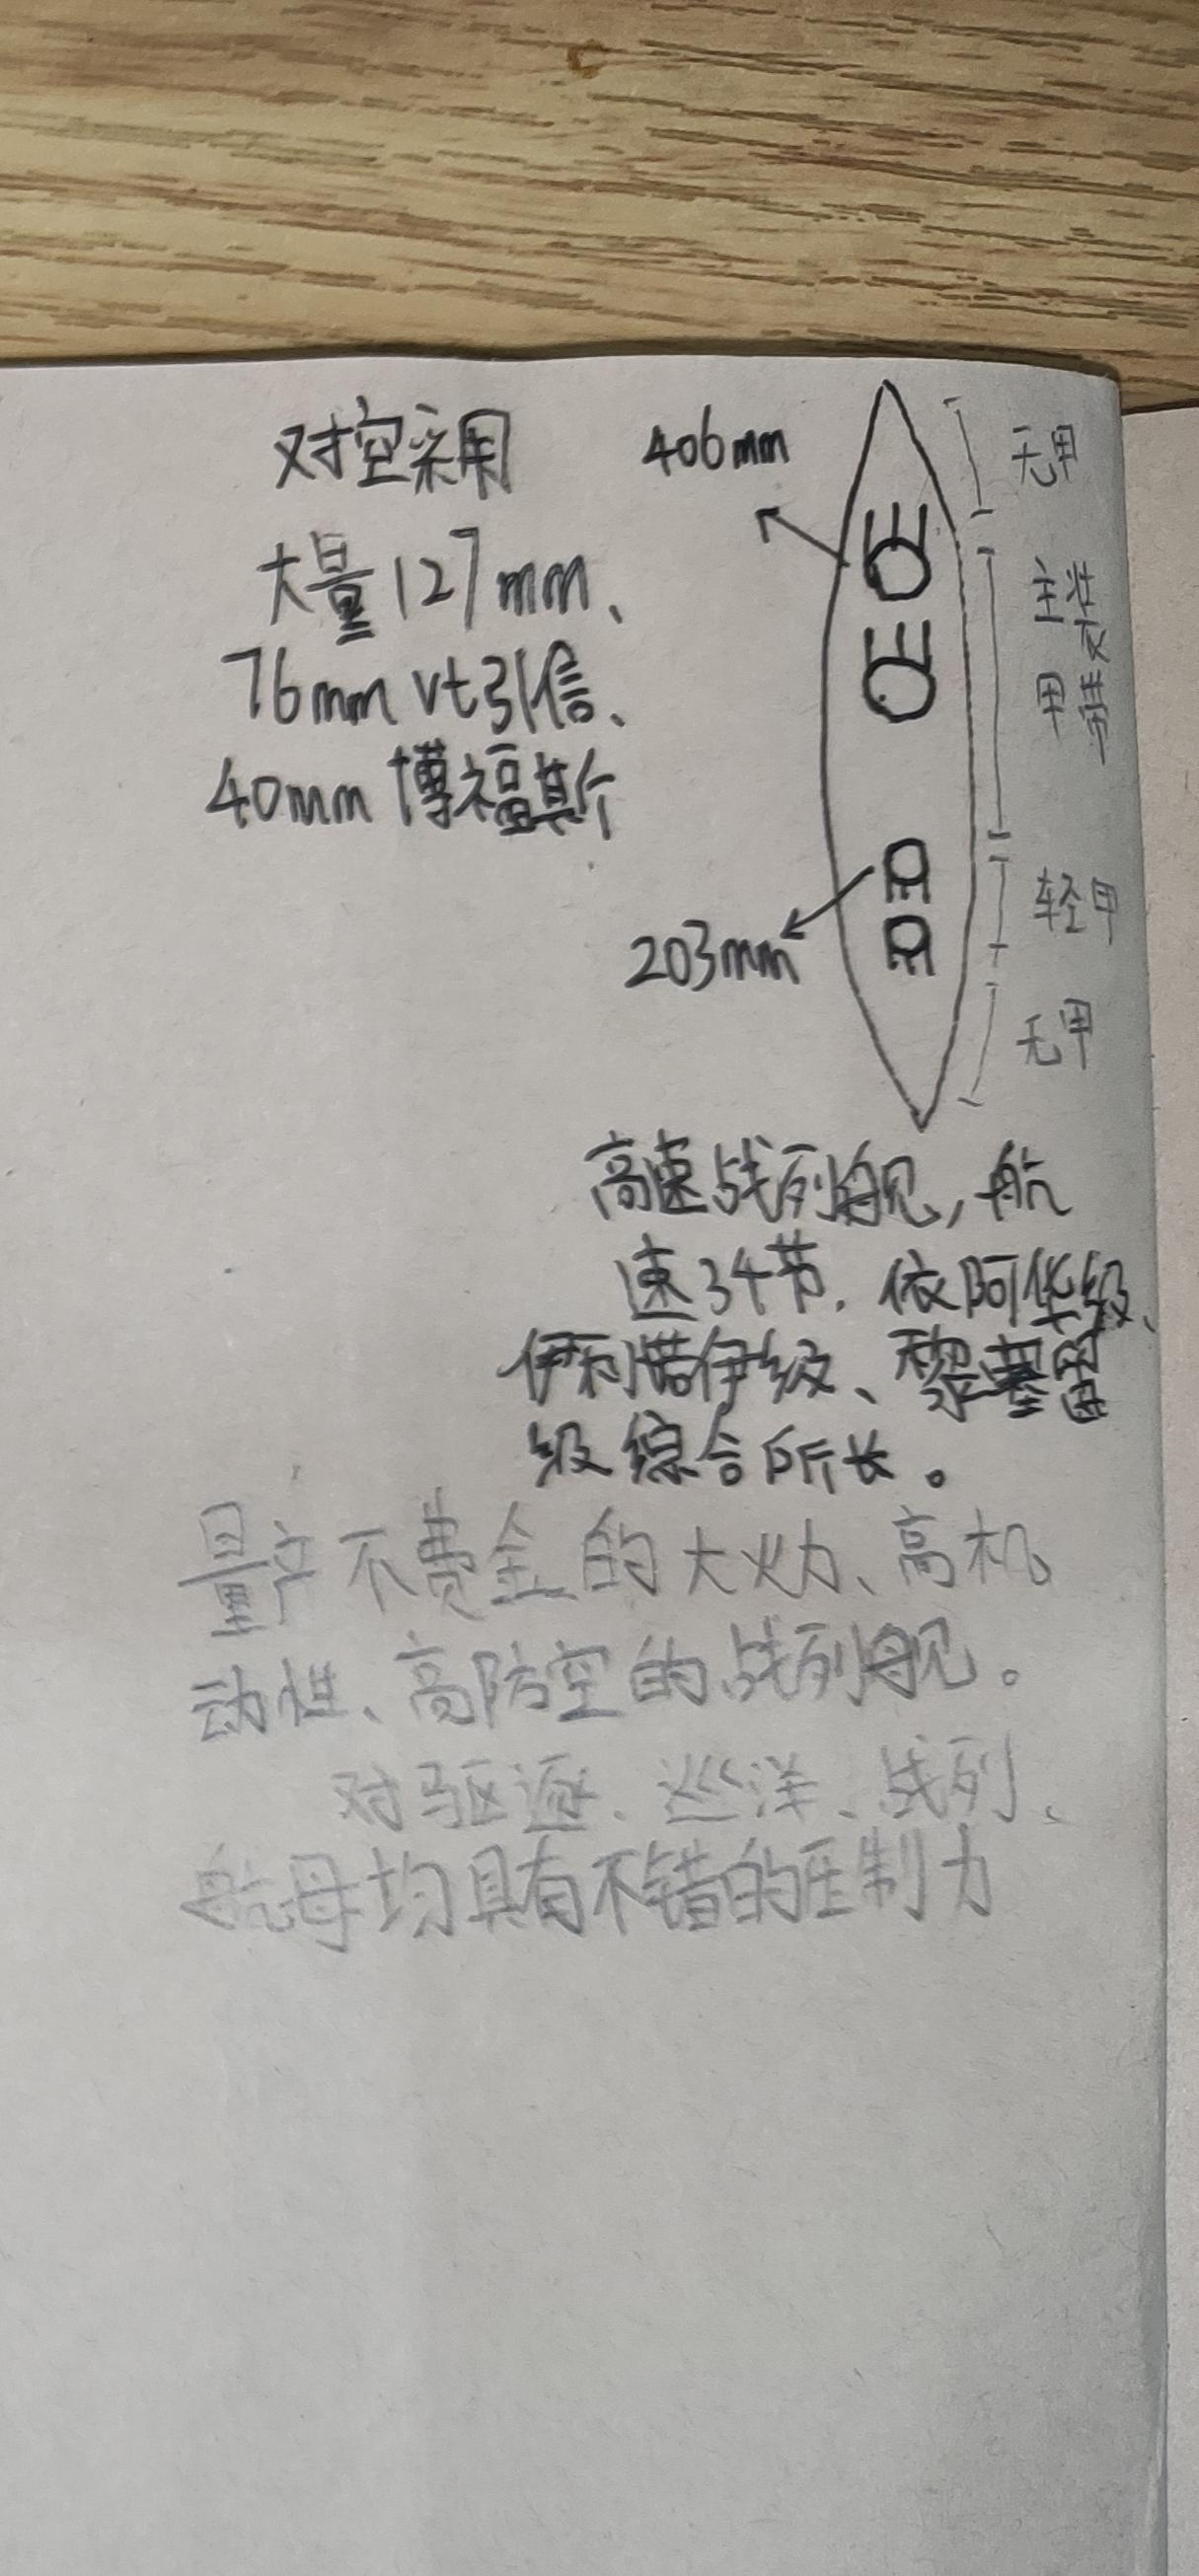 对空采用
大量127mm、
76mm vt引信、
40mm博福斯
406mm
203mm
无甲
主装
甲带
轻甲
无甲
高速战列舰，航
速34节. 依阿华级、
伊利塔伊级、黎塞留
级综合所长。
量产不费金的大火力、高机
动性、高防空的战列舰。
对驱逐、巡洋、战列、
航母均具有不错的压制力